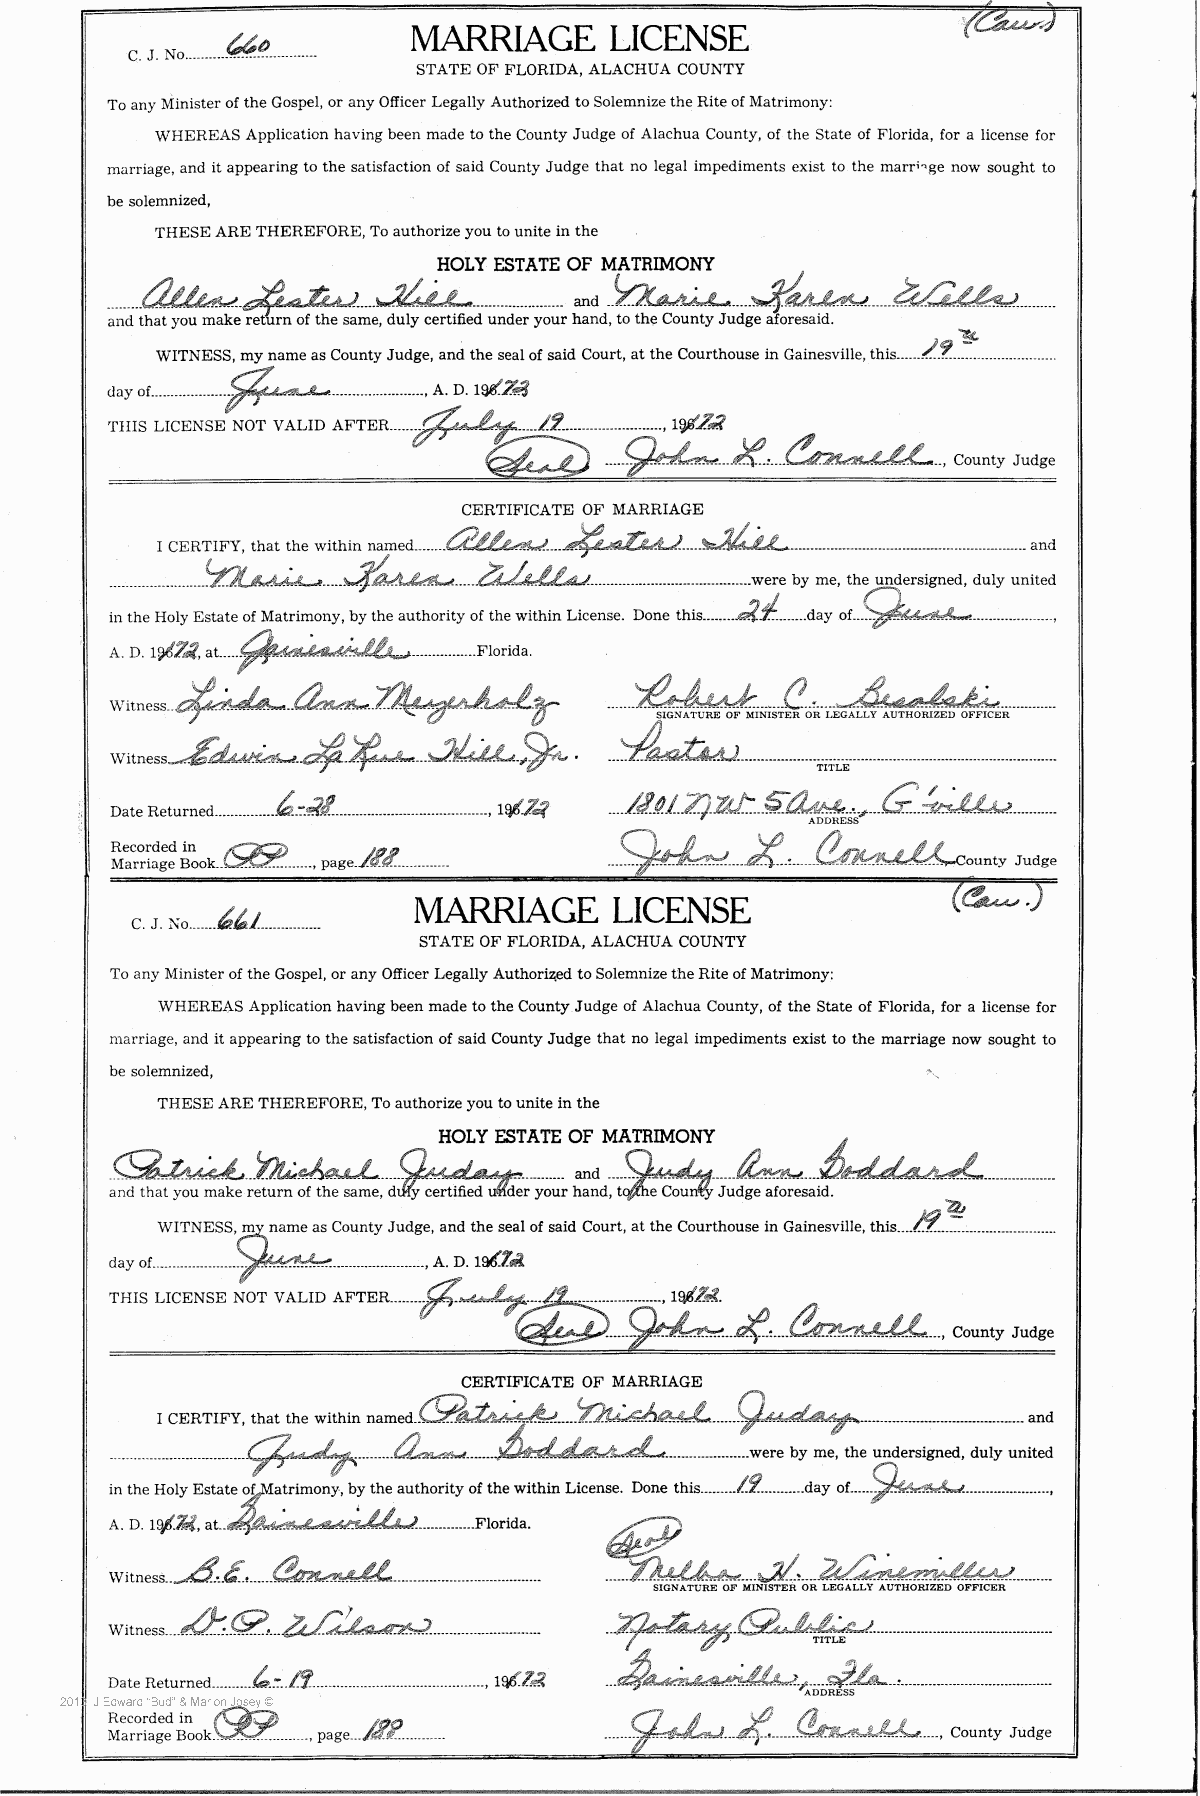 (Cau.)
C. J. No. 660 MARRIAGE LICENSE
STATE OF FLORIDA, ALACHUA COUNTY
To any Minister of the Gospel, or any Officer Legally Authorized to Solemnize the Rite of Matrimony:
WHEREAS Application having been made to the County Judge of Alachua County, of the State of Florida, for a license for
marriage, and it appearing to the satisfaction of said County Judge that no legal impediments exist to the marriage now sought to
be solemnized,
THESE ARE THEREFORE, To authorize you to unite in the
HOLY ESTATE OF MATRIMONY
Allen Lester Hill and Marie Karen Wells
and that you make return of the same, duly certified under your hand, to the County Judge aforesaid.
WITNESS, my name as County Judge, and the seal of said Court, at the Courthouse in Gainesville, this 19th
day of June, A. D. 1972
THIS LICENSE NOT VALID AFTER July 19, 1972
(Seal) John L. Connell, County Judge
CERTIFICATE OF MARRIAGE
I CERTIFY, that the within named Allen Lester Hill and
Marie Karen Wells were by me, the undersigned, duly united
in the Holy Estate of Matrimony, by the authority of the within License. Done this 24 day of June,
A. D. 1972, at Gainesville Florida.
Witness Linda Ann Meyerholz Robert C. Besalski
SIGNATURE OF MINISTER OR LEGALLY AUTHORIZED OFFICER
Witness Edwin LaRue Hill, Jr. Pastor
TITLE
Date Returned 6-28, 1972 1801 NW 5 Ave., G'ville
ADDRESS
Recorded in
Marriage Book PP, page 188 John L. Connell County Judge
(Cau.)
C. J. No. 661 MARRIAGE LICENSE
STATE OF FLORIDA, ALACHUA COUNTY
To any Minister of the Gospel, or any Officer Legally Authorized to Solemnize the Rite of Matrimony:
WHEREAS Application having been made to the County Judge of Alachua County, of the State of Florida, for a license for
marriage, and it appearing to the satisfaction of said County Judge that no legal impediments exist to the marriage now sought to
be solemnized,
THESE ARE THEREFORE, To authorize you to unite in the
HOLY ESTATE OF MATRIMONY
Patrick Michael Juday and Judy Ann Goddard
and that you make return of the same, duly certified under your hand, to the County Judge aforesaid.
WITNESS, my name as County Judge, and the seal of said Court, at the Courthouse in Gainesville, this 19th
day of June, A. D. 1972
THIS LICENSE NOT VALID AFTER July 19, 1972.
(Seal) John L. Connell, County Judge
CERTIFICATE OF MARRIAGE
I CERTIFY, that the within named Patrick Michael Juday and
Judy Ann Goddard were by me, the undersigned, duly united
in the Holy Estate of Matrimony, by the authority of the within License. Done this 19 day of June,
A. D. 1972, at Gainesville Florida.
(Seal)
Witness B.E. Connell Melba H. Winemiller
SIGNATURE OF MINISTER OR LEGALLY AUTHORIZED OFFICER
Witness D.P. Wilson Notary Public
TITLE
Date Returned 6-19, 1972 Gainesville, Fla.
ADDRESS
J Edward "Bud" & Marion Josey ©
Recorded in
Marriage Book PP, page 188 John L. Connell, County Judge